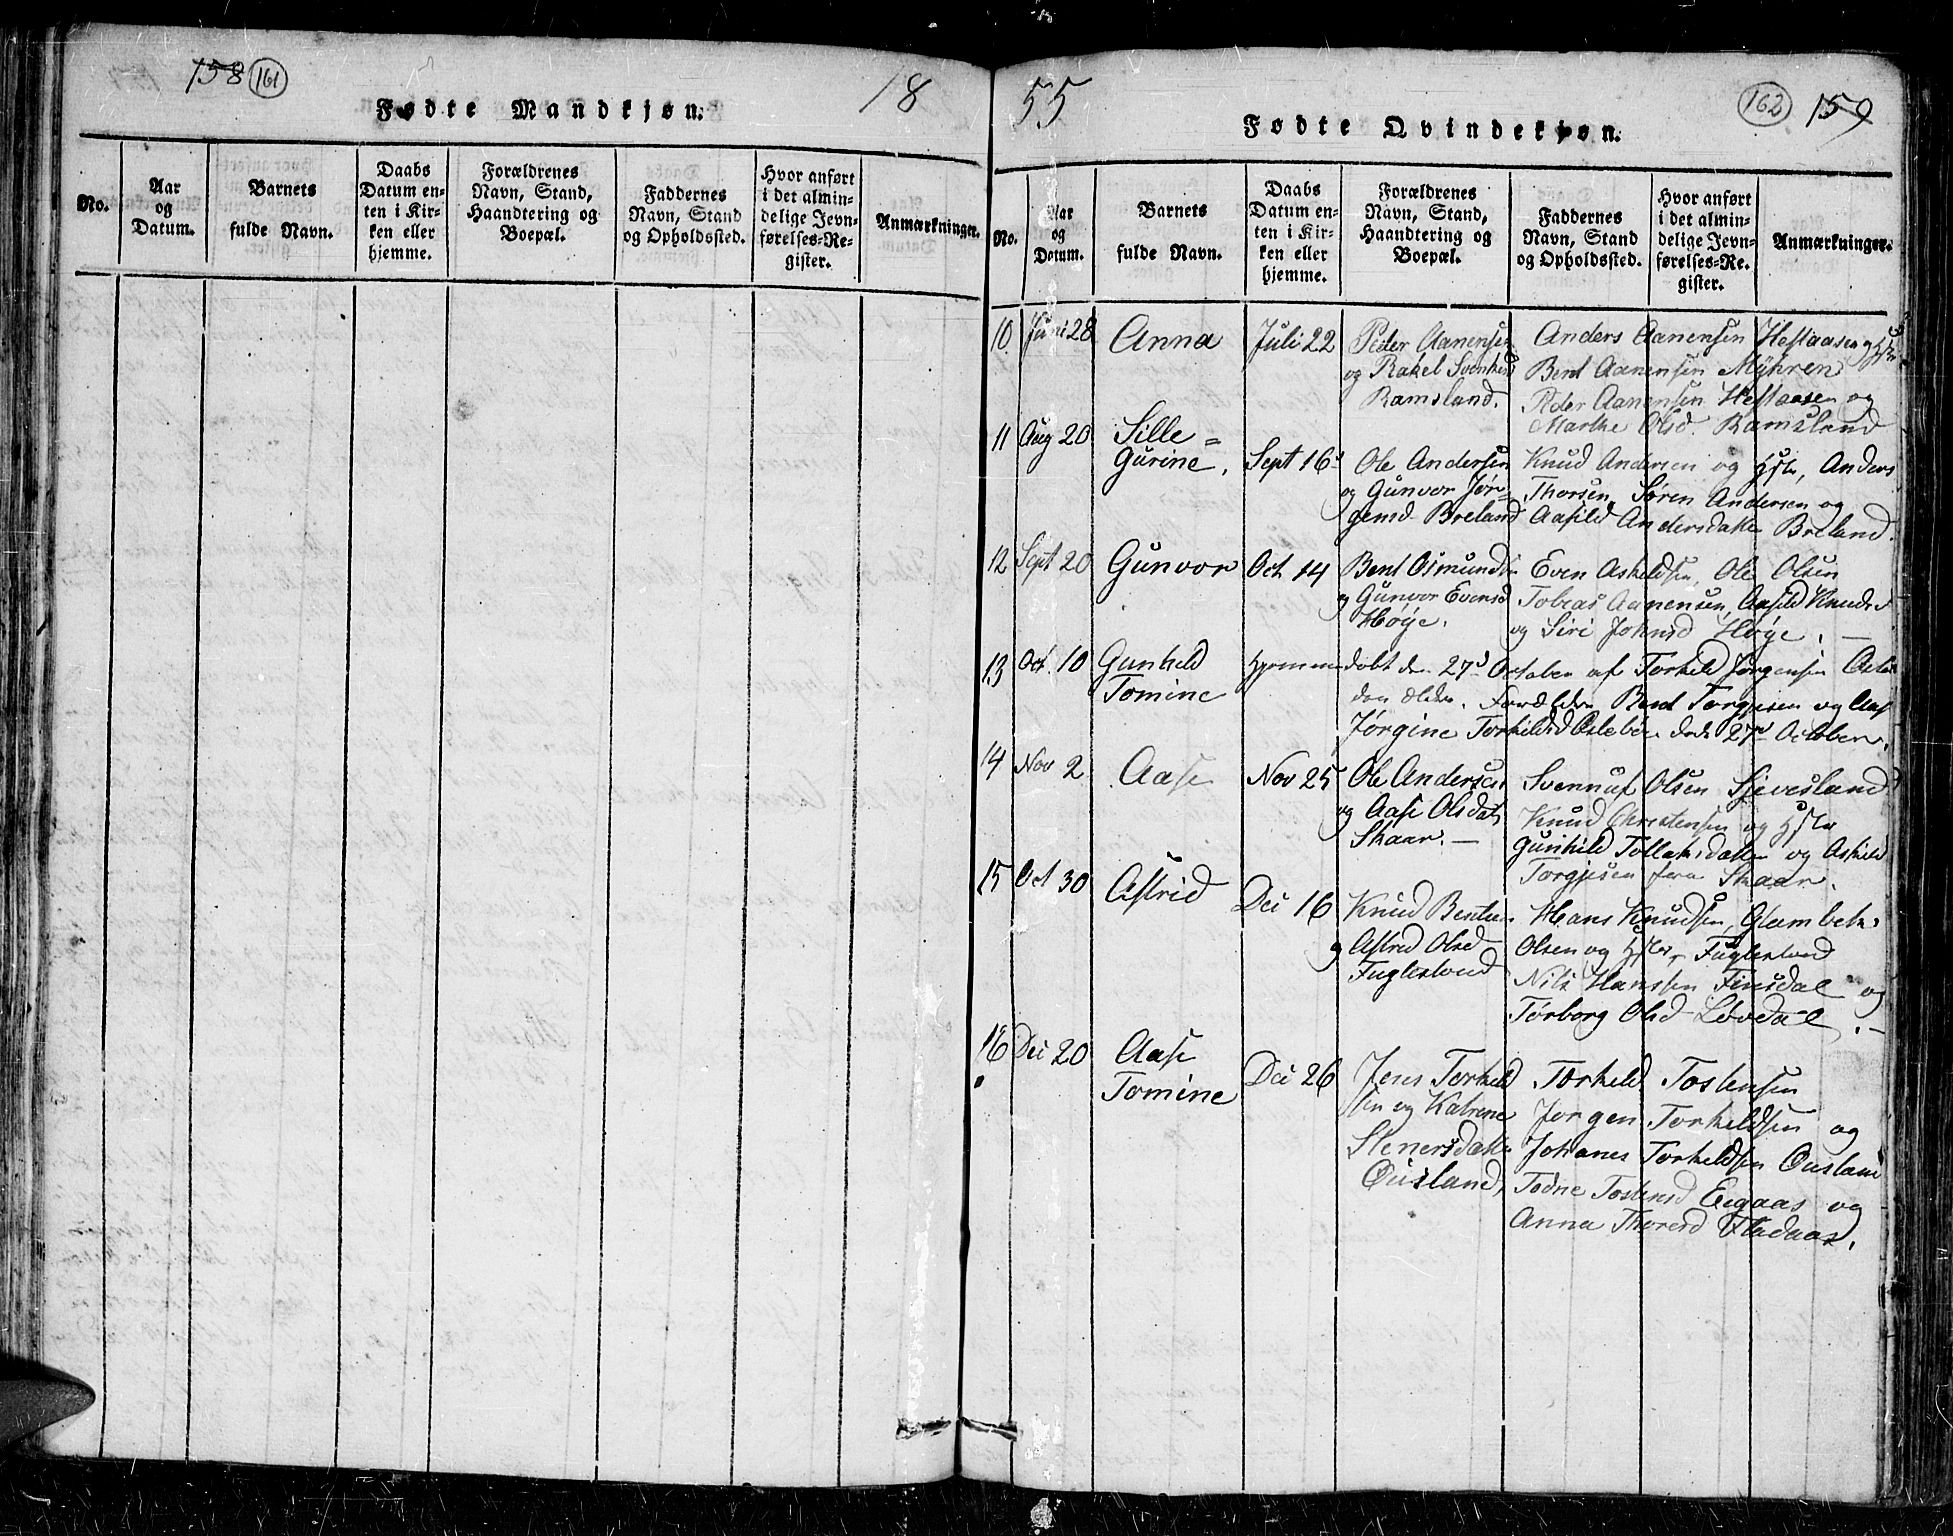 158 161
18
Fødte Mandkjøn.
No.
Aar
og
Datum.
Barnets
fulde Navn.
Daabs
Datum en-
ten i Kir-
ken eller
hjemme.
Forældrenes
Navn, Stand,
Haandtering og
Boepæl.
Faddernes
Navn, Stand
og Opholdssted.
Hvor anført
i det almin-
delige Jevn-
førelses-Re-
gister.
Anmærkninger.
55
162 159
Fødte Qvindekjøn.
No.
Aar
og
Datum.
Barnets
fulde Navn.
Daabs
Datum en-
ten i Kir-
ken eller
hjemme.
Forældrenes
Navn, Stand,
Haandtering og
Boepæl.
Faddernes
Navn, Stand
og Opholdssted.
Hvor anført
i det almin-
delige Jevn-
førelses-Re-
gister.
Anmærkninger.
10 Juni 28 Anna Juli 22
Peder Aanensen
og Rakel
Ramsland.
Anders Aanensen Heftaasen og
Bent Aanensen Myhren
Peder Aanensen Heftaasen og
Marthe Olsd. Ramsland
11 Aug 20 Sille=
Gurine. Sept 16
Ole Andersen
og Gunvor Jør=
gensd Breland
Knud Andersen og Anders
Thorsen, Søren Andersen og
Aasild Andersdatter Breland.
12 Sept 20 Gunvor Oct 14
Bent Osmundsen
og Gunvor Evensd
Høye.
Even Askeldsen, Ole Olsen
Tobias Aanensen, Aasild Knudsd
og Siri Johnsd Høye. —
13 Oct. 10 Gunhild
Tomine
Hjemmedøbt den 27d October af Torkild Jørgensen
den ældre. Forældre Bent Torgjusen og
Jørgine Torkildsd Oslebøe døde 27d October.
14 Nov 2 Aase Nov 25
Ole Andersen
og Aase Olsdat
Skaar. —
Svennuf Olsen Sjevesland
Knud Christensen og
Gunhild Tollaksdatter og Askild
Torgjusen fra Skaar.
15 Oct 30 Astrid Dec 16
Knud Bentsen
og Astrid Olsd
Fuglestved
Hans Knudsen, Glambek
Olsen og Fuglestved
Nils Hansen Finsdal og
Torborg Olsd Løvdal. —
16 Dec 20 Aase
Tomine Dec 26
Jens Torkild
sen og Katrine
Stenersdatter
Øuisland,
Torkeld Tostensen
Jorgen Torkeldsen og
Johanes Torkeldsen Øusland
Todne Tostensd Eegaas og
Anna Thoresd Fladaas.